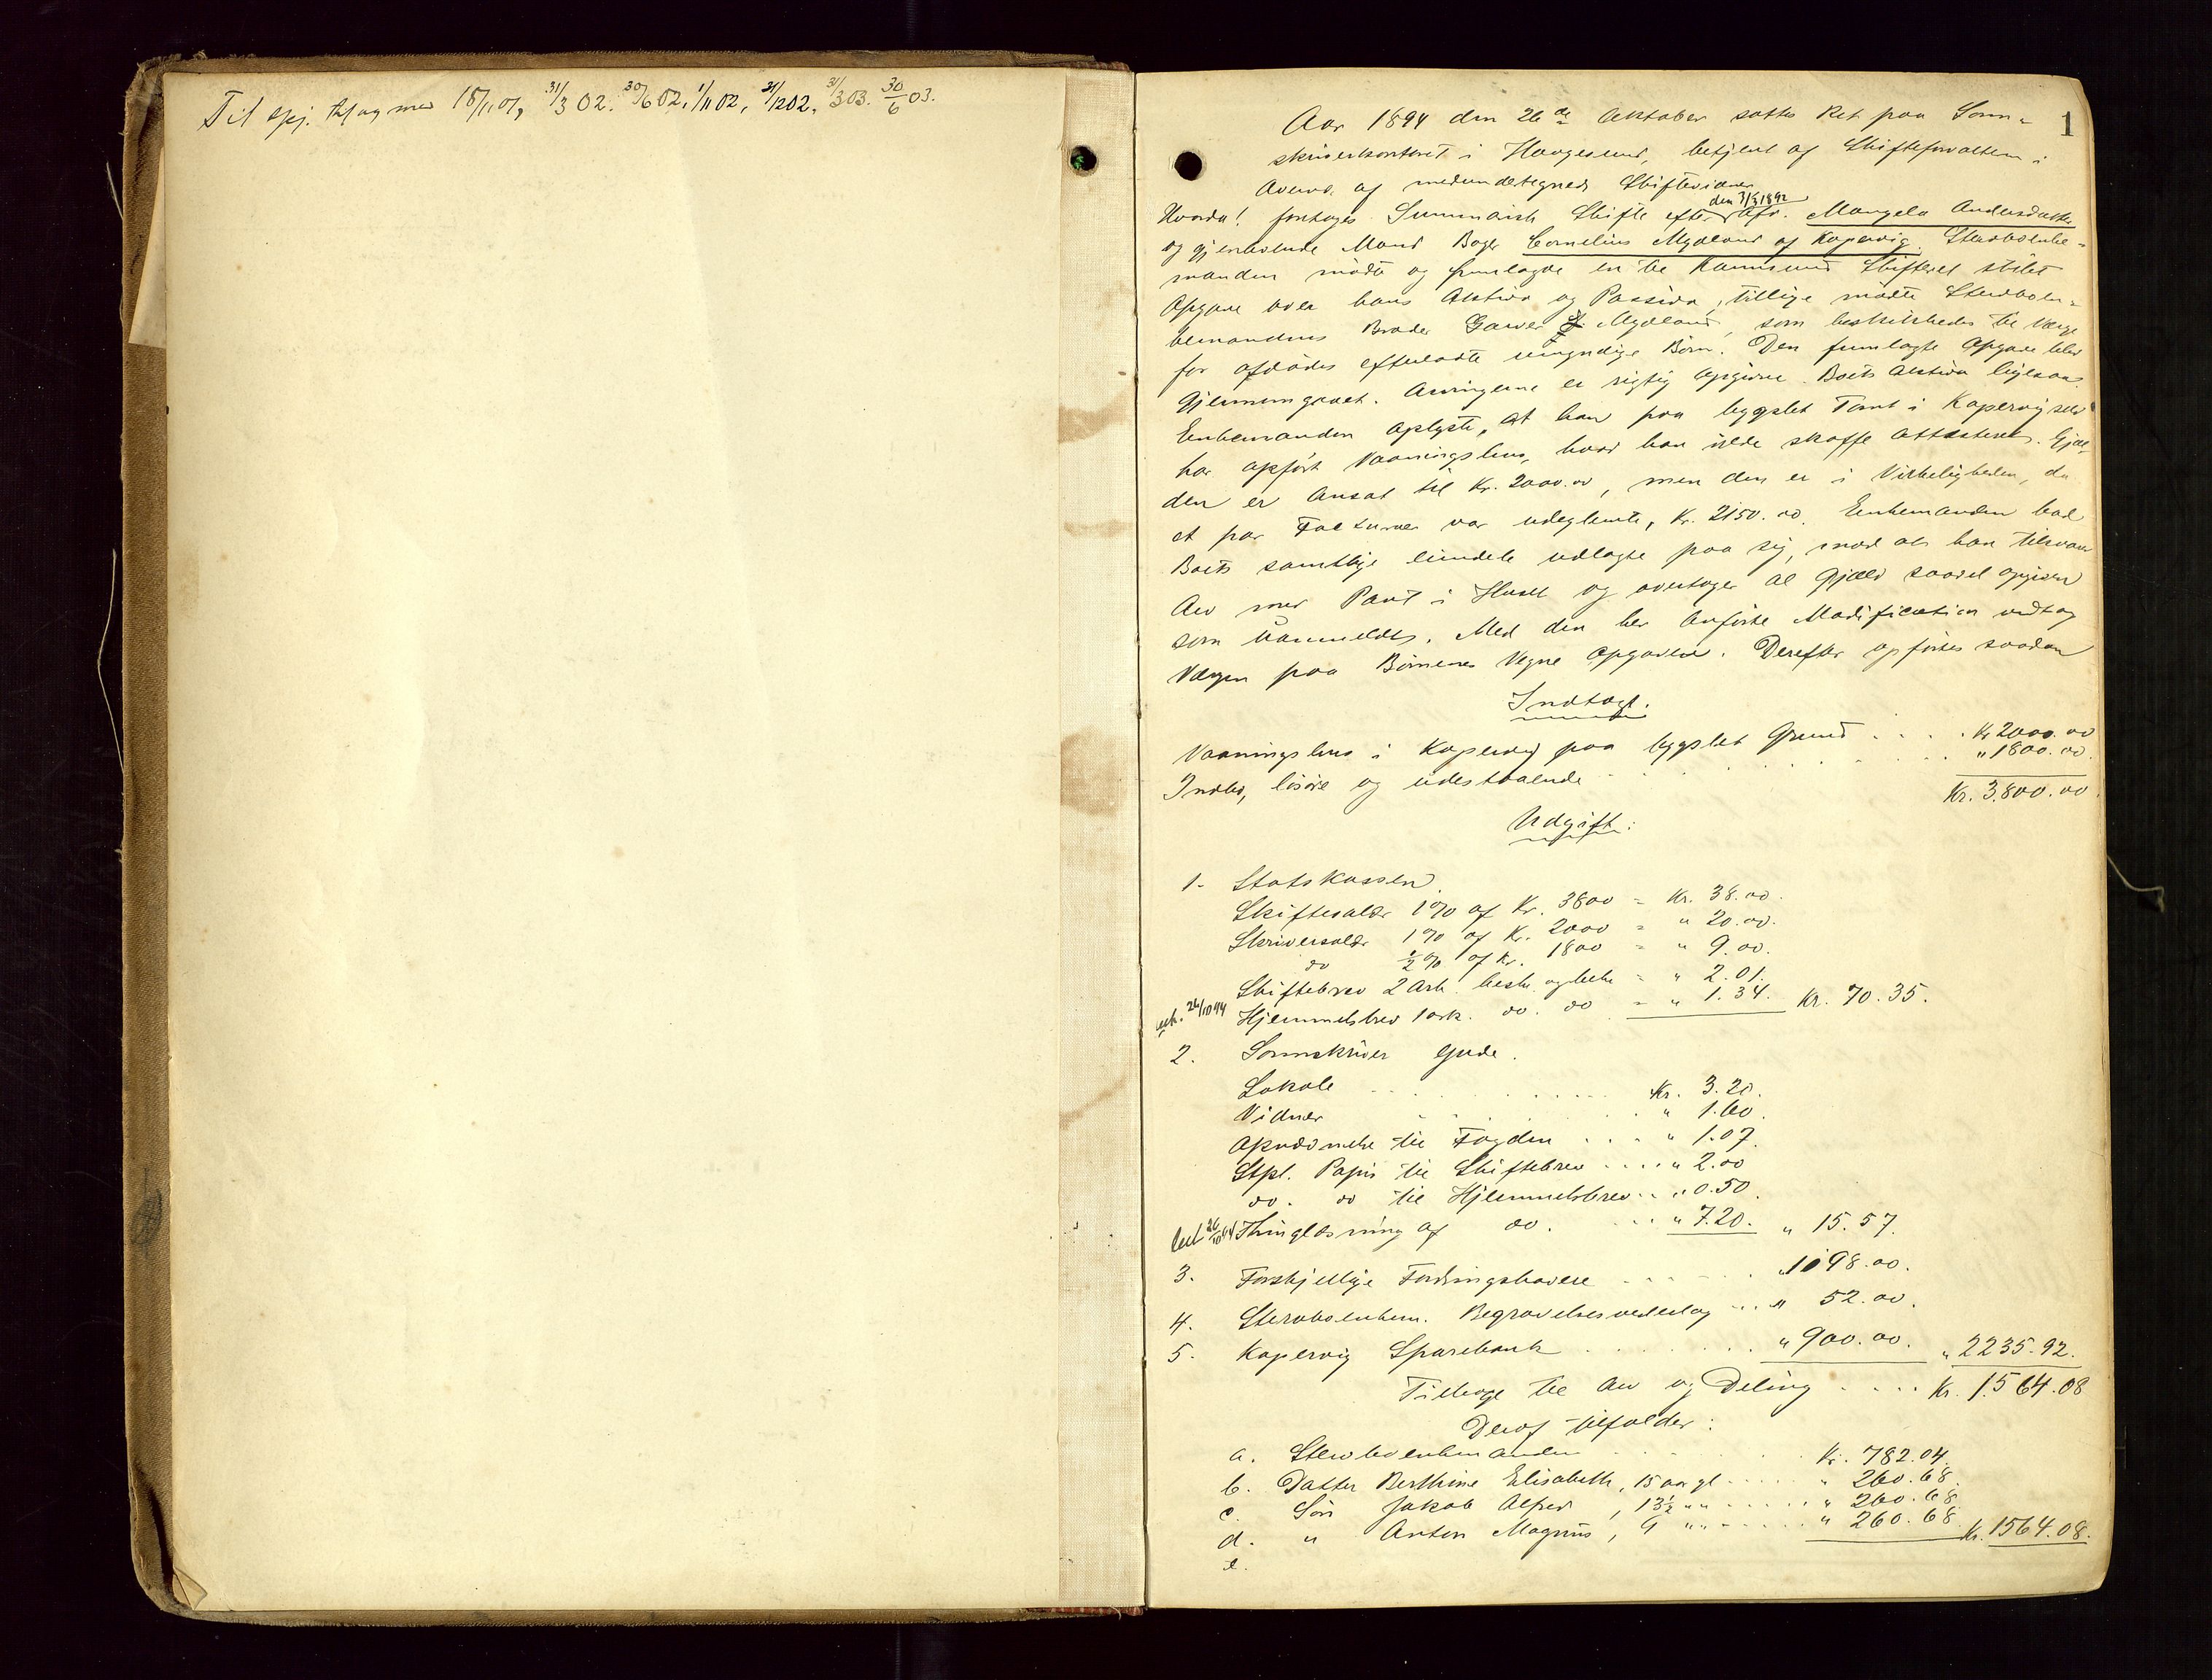 Til 18/11 01, 31/3 02. 30/6 02, 1/11 02, 31/12 02, 31/3 03. 30/6 03.
1
Aar 1894 den 26de Oktober sattes Ret paa Sorn-
skriverkontoret i Haugesund, betjent af Skifteforvalteren i
Overvær af medundertegnede Skiftevidner
den 3/3 1892
Hvorda! foretoges Summarisk Skifte efter Afd. Mangela Andersdatter
og gjenlevende Mand Bager Cornelius Mydland af Kopervig. Sterboenke-
manden mødte og fremlagde en til Karmsund Skifteret stilet
Opgave over hans Aktiva og Passiva, tillige mødte Sterboen-
kemandens Broder Garver Mydland, som beskikkedes til Værge
for afdødes efterladte umyndige Børn. Den fremlagte Opgave blev
Gjennemgaaet. Arvingerne er rigtig Opgivne. Boets Aktiva ligesaa.
Enkemanden Oplyste, at han paa bygslet Tomt i Kopervig selv
har opført Vaaningshus, hvad han vilde skaffe Attesteret. Gjæl-
den er Ansat til Kr. 2000.00, men den er i Virkeligheden, da
et par Facturaer var udeglemte, Kr. 2150.00. Enkemanden bad
Boets samtlige Eiendele udlagte paa sig, mod at han tilsvarer
Arv mod Pant i Huset og overtager al Gjæld saavel opgiven
som Uanmeldt. Med den her Anførte Modification vedtog
Værgen paa Børnenes Vegne Opgaven. Derefter opførtes saadan
Indtægt.
Vaaningshus i Kopervig paa bygslet Grund . . . . Kr 2000.00
Indbo, løsøre og udestaaende . . . . „ 1800.00.
Kr. 3.800.00
Udgift:
1. Statskassen.
Skiftesaldr 1% af Kr. 3800 = Kr. 38.00.
Skriversaldr 1% af Kr. 2000 = „ 20.00.
do ½% af Kr. 1800 = „ 9.00.
Skiftebrev 2 Ark. beskr. og = „ 2.01.
26/10 94 Hjemmelsbrev 1 ark. do. do = „ 1.34. Kr. 70.35.
2. Sornskriver Gjude.
Lokale . . . . Kr. 3.20.
Vidner . . . . „ 1.60.
til Fogden . . . . „ 1.07.
Stpl. Papir til Skiftebrev . . . . „ 2.00
do. do til Hjemmelsbrev . . „ 0.50.
26/10 94 Thinglæsning af do. . . . „ 7.20. „ 15.57.
3. Forskjellige Fordringshavere . . . . „ 1098.00.
4. Sterboenkem. Begravelsesvederlag . . . „ 52.00.
5. Kopervig Sparebank . . . . „ 900.00. „ 2235.92.
Tilbage til Arv og Deling . . . . Kr. 1564.08
Deraf tilfalder:
a. Sterboenkemanden . . . . Kr. 782.04.
b. Datter Berthine Elisabeth, 15 aar gl. . . . . „ 260.68
c. Søn Jakob Alfred, 13½ „ „ . . . . „ 260.68
d. „ Anton Magnus, 9 „ „ . . . . „ 260.68 Kr. 1564.08.
e.